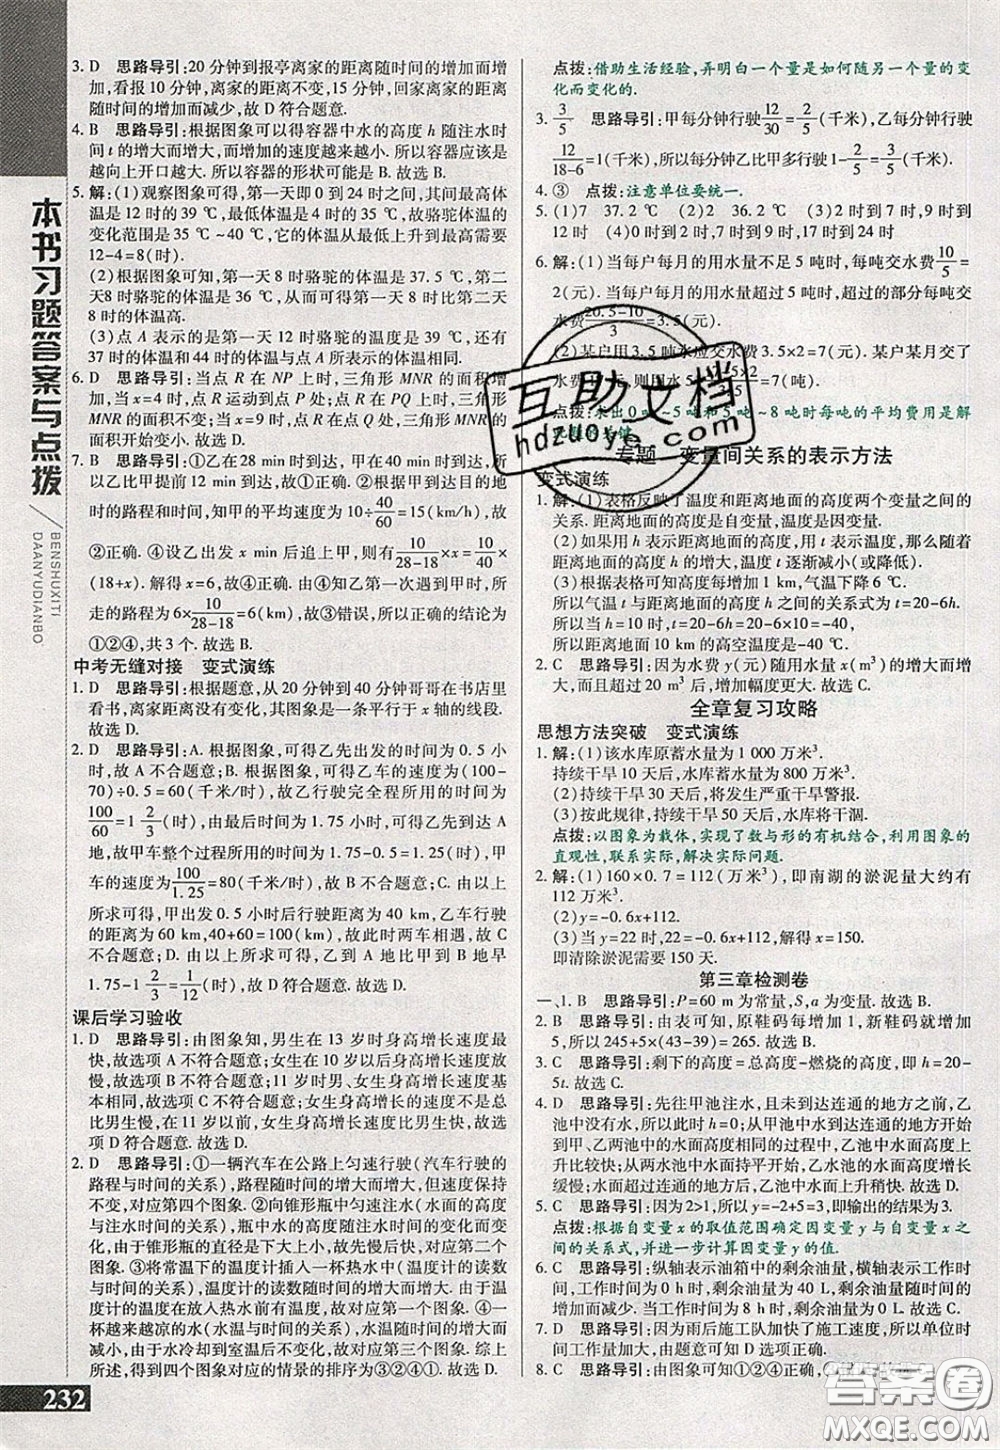 本书习题答案与点拨
BENSHUXITI
DAANYUDIANBO
3. D 思路导引:20分钟到报亭离家的距离随时间的增加而增
加,看报10分钟,离家的距离不变,15分钟回家离家的距离
随时间的增加而减少,故D符合题意.
4. B 思路导引:根据图象可以得容器中水的高度h随注水时
间t的增大而增大,而增加的速度越来越小.所以容器应该是
越向上开口越大.所以容器的形状可能是B.故选B.
5. 解:(1)观察图象可得,第一天即0到24时之间,其间最高体
温是12时的39 ℃,最低体温是4时的35 ℃,故骆驼体温的
变化范围是35 ℃~40 ℃,它的体温从最低上升到最高需要
12-4=8(时).
(2)根据图象可知,第一天8时骆驼的体温是37.5 ℃,第二
天8时骆驼的体温是36 ℃,则第一天8时的体温比第二天
8时的体温高.
(3)点A表示的是第二天16时骆驼的温度是39 ℃,第二天
37时的体温和44时的体温与点A所表示的体温相同.
6. D 思路导引:当点R在NP上时,三角形MNR的面积增
加,当x=4时,点R运动到点P处;当点R在PQ上时,三角形
MNR的面积不变;当x=9时,点R在点Q处,三角形MNR的
面积开始变小.故选D.
7. B 思路导引:①乙在28 min时到达,甲在40 min时到达,
所以乙比甲提前12 min到达.故①正确.根据甲到达目的地
时的路程和时间,知甲的平均速度为10÷40/60=15(km/h).故
②正确.④设乙出发x min后追上甲,则有10/(28-18)x=10/40×
(18+x).解得x=6,故④正确.由④知乙第一次遇到甲时,所
走的路程为6×10/(28-18)=6(km),故③错误,所以正确的结论为
①②④,共3个.故选B.
中考无缝对接 变式演练
1. D 思路导引:根据题意,从20分钟到40分钟哥哥在书店里
看书,离家距离没有变化,其图象是一条平行于x轴的线段.
故选D.
2. D 思路导引:A.根据图象,可得乙先出发的时间为0.5小
时,故A不合题意;B.根据图象,可得乙车的速度为(100-
70)÷0.5=60(千米/时),可得乙行驶完全程所用的时间为
100/60=1 2/3(时),由最后时间为1.75小时,可得乙先到达A
地,故甲车整个过程所用的时间为1.75-0.5=1.25(时),甲
车的速度为100/1.25=80(千米/时),故B不合题意;C.由以上
所求可得,甲出发0.5小时行驶距离为40 km,乙车行驶了
60 km,40+60=100(km),故此时两车相遇,故C不合题意;
D.由以上所求可得,乙到A地比甲到B地早
1.75-1 2/3=1/12(时),故D符合题意.
课后学习验收
1. D 思路导引:由图象可知,男生在13岁时身高增长速度最
快,故选项A不符合题意;女生在10岁以后身高增长速度放
慢,故选项B不符合题意;11岁时男、女生身高增长速度基
本相同,故选项C不符合题意;女生身高增长的速度不是总
比男生慢,如在11岁以前,女生身高增长速度比男生快,故选
项D符合题意.故选D.
2. D 思路导引:①一辆汽车在公路上匀速行驶(汽车行驶的
路程与时间的关系),路程随时间的增大而增大,但速度保持
不变,对应第四个图象.②向锥形瓶中匀速注水(水面的高度
与注水时间的关系),瓶中水的高度随时间的变化而变化,
由于锥形瓶的直径是下大上小,故先慢后快,对应第二个图
象.③将常温下的温度计插入一杯热水中(温度计的读数
与时间的关系),温度计的读数随时间的增大而增大,由于温
度计的温度在放入热水前有个温度,故对应第一个图象.④一
杯越来越凉的水(水温与时间的关系),水温随着时间的增大
而越来越低,冷却到室温后不变化,故对应第三个图象.综上
所述,所得到四个图象对应的情景的排序为③②④①.故选D.
232
点拨:借助生活经验,弄明白一个量是如何随另一个量的变
化而变化的.
3. 3/5 思路导引:甲每分钟行驶12/30=2/5(千米),乙每分钟行驶
12/(18-6)=1(千米),所以每分钟乙比甲多行驶1-2/5=3/5(千米).
4. ③ 点拨:注意单位要统一.
5. (1)7 37.2 ℃ (2)2 36.2 ℃ (3)2时到7时,9时到
12时 (4)0时到2时,7时到9时,17时到24时
6. 解:(1)当每户每月的用水量不足5吨时,每吨交水费10/5=
2(元).当每户每月的用水量超过5吨时,超过的部分每吨交
水费(20.5-10)/3=3.5(元).
(2)某户用3.5吨水应交水费3.5×2=7(元).某户某月交水
点拨:求出0吨~5吨和5吨~8吨时每吨的平均费用是解
互助文档
hdzuoye.com
专题 变量间关系的表示方法
变式演练
1. 解:(1)表格反映了温度和距离地面的高度两个变量之间的
关系.距离地面的高度是自变量,温度是因变量.
(2)如果用h表示距离地面的高度,用t表示温度,那么随着
h的增大,t逐渐减小(或降低).
(3)根据表格可知每增加1 km,气温下降6 ℃,
所以气温t与距离地面的高度h之间的关系式为t=20-6h.
所以当h=10时,t=20-6×10=-40,
所以距离地面10 km的高空温度是-40 ℃.
2. C 思路导引:因为水费y(元)随用水量x(m³)的增大而增
大,而且超过20 m³后,增加幅度更大.故选C.
全章复习攻略
思想方法突破 变式演练
1. 解:(1)该水库原蓄水量为1 000万米³,
持续干旱10天后,水库蓄水量为800万米³.
(2)持续干旱30天后,将发生严重干旱警报.
(3)按此规律,持续干旱50天后,水库将干涸.
点拨:以图象为载体,实现了数与形的有机结合,利用图象的
直观性,联系实际,解决实际问题.
2. 解:(1)160×0.7=112(万m³),即南湖的淤泥量大约有
112万m³.
(2)y=-0.6x+112.
(3)当y=22时,22=-0.6x+112,解得x=150.
即清除淤泥需要150天.
第三章检测卷
一、1. B 思路导引:P=60 m为常量,S,a为变量.故选B.
2. B 思路导引:由表可知,原鞋码每增加1,新鞋码就增加
5,所以245+5×(43-39)=265.故选B.
3. C 思路导引:剩下的高度=总高度-燃烧的高度,即h=20-
5t.故选C.
4. D 思路导引:先往甲池注水,且未到达连通的地方之前,乙
池中水面高度没变化;当甲池中水到达连通的地方,乙池中水
面开始上升,且上升比较快;当两池中水面高度相同时,乙池中水面上升
缓慢;最后超过连通的地方时,乙池中水上升稍快.故选D.
5. B 思路导引:因为2>1,所以y=-2+5=3,即输出的结果为3.
点拨:根据自变量x的取值范围确定因变量y与自变量x之
间的关系式,并进一步计算因变量y的值.
6. C 思路导引:纵轴表示油箱中的剩余油量,横轴表示工作时
间,工作时间为0 h时,剩余油量为40 L,剩余油量随工作时
间的增大而减小,当工作时间为8 h时,剩余油量为0.故选C.
7. D 思路导引:因为雨后施工队加快了施工速度,所以单位时
间内工作量增加,观察可知D选项正确.故选D.
8. C 思路导引:由图象可知①②④正确.
答案圈
MXQE.COM